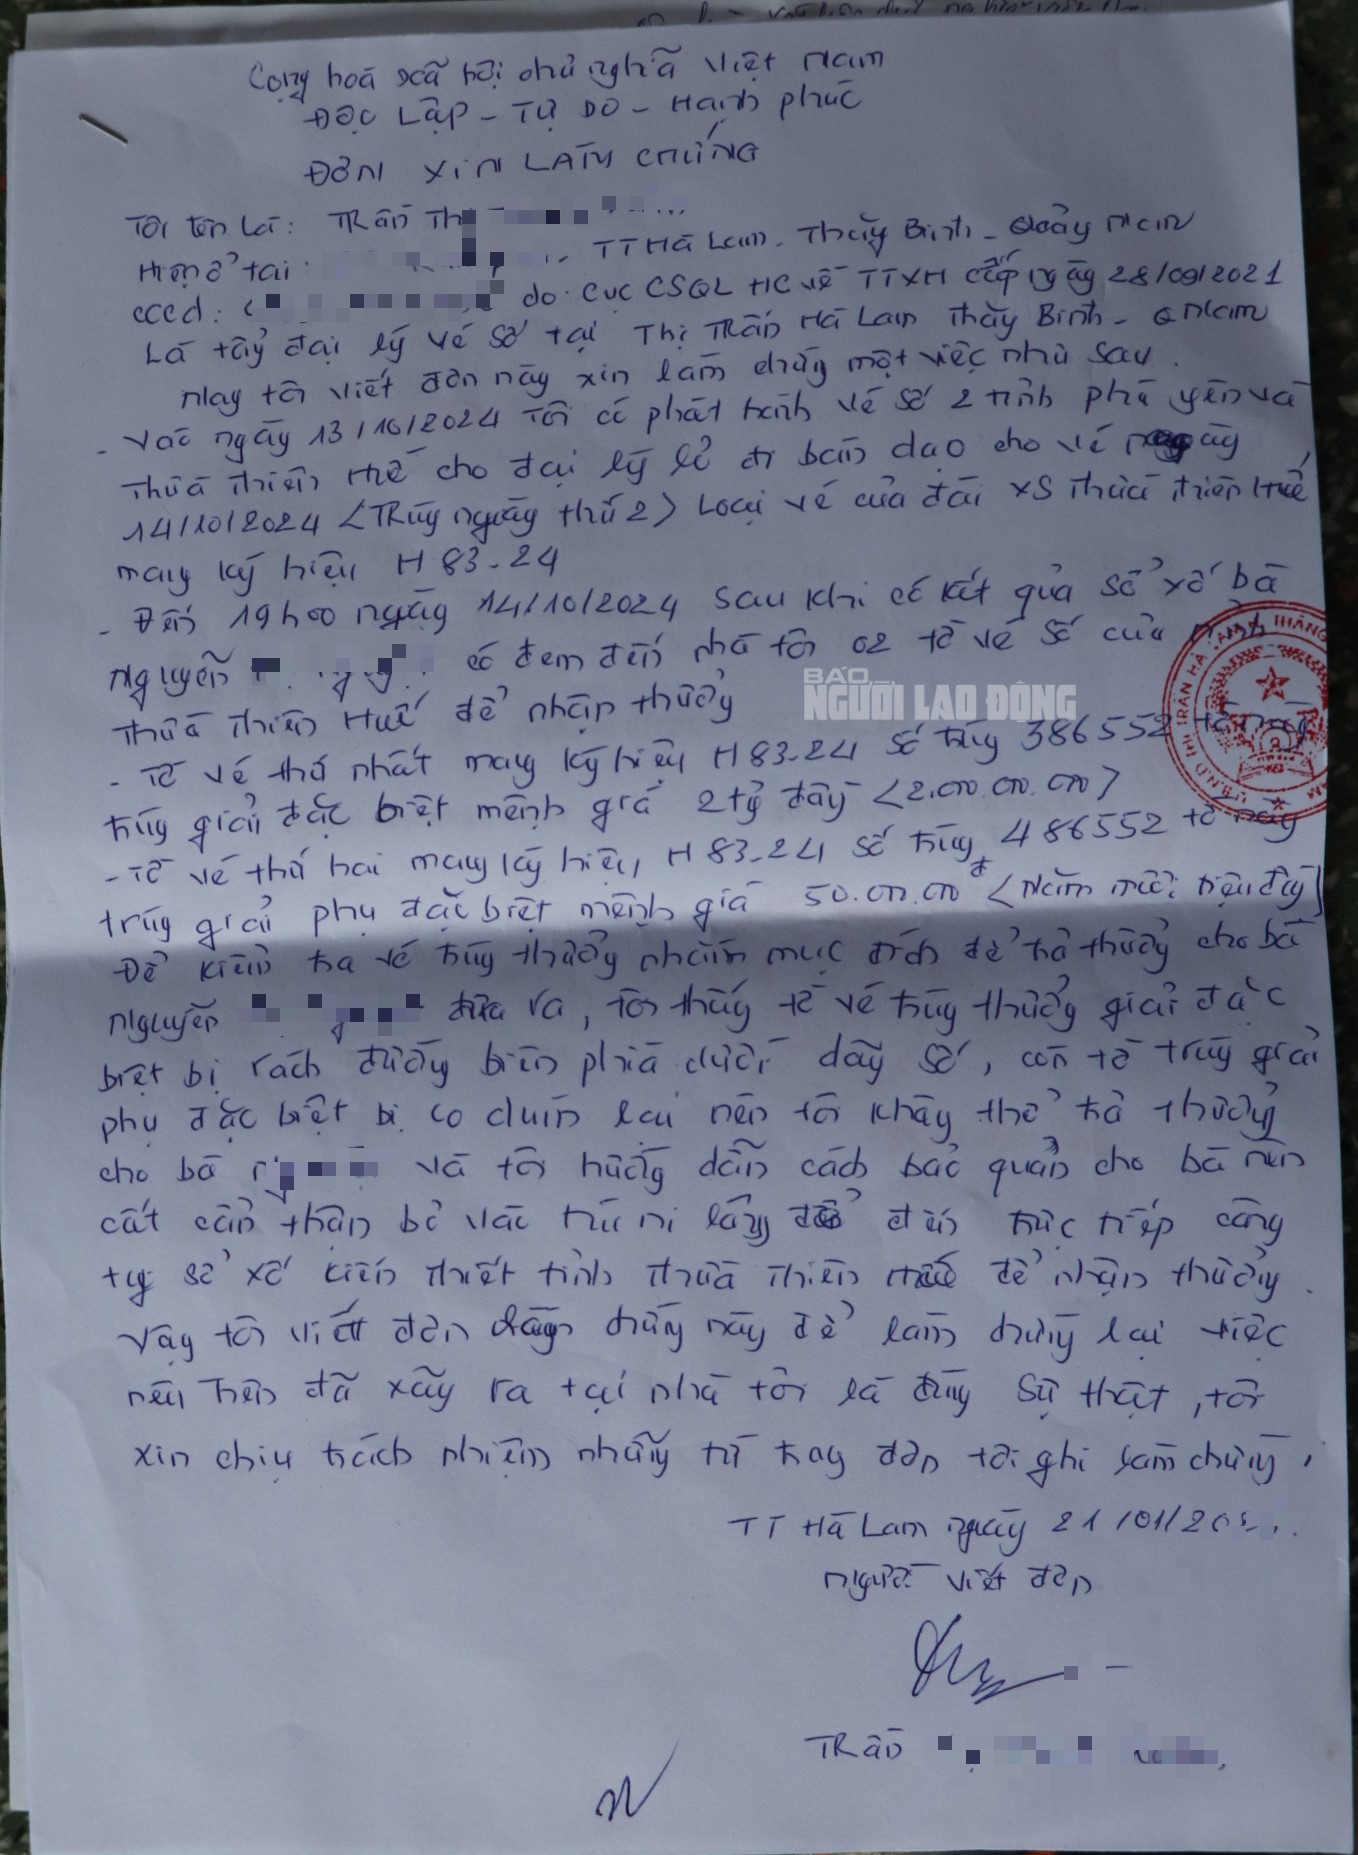 Cộng hoà xã hội chủ nghĩa Việt Nam
ĐỘC LẬP - TỰ DO - Hạnh phúc
ĐƠN XIN LÀM CHỨNG
Tôi tên là: TRần Thị
Hiện ở tại: TT Hà Lam - Thăng Bình - Quảng Nam
cccd: do cục CSQL HC về TTXH cấp ngày 28/09/2021
Là tổng đại lý vé số tại Thị Trấn Hà Lam Thăng Bình - QNam
Nay tôi viết đơn này xin làm chứng một việc như sau.
- Vào ngày 13/10/2024 Tôi có phát hành vé số 2 tỉnh phú yên và
Thừa thiên Huế cho đại lý lẻ đi bán dạo cho vé ngày
14/10/2024 <Trúng ngày thứ 2> Loại vé của đài XS Thừa thiên Huế
mang ký hiệu H 83-24
- Đến 19h00 ngày 14/10/2024 sau khi có kết quả sổ xố bà
Nguyễn có đem đến nhà tôi 02 tờ vé số của tỉnh
Thừa Thiên Huế để nhận thưởng
BÁO
NGƯỜI LAO ĐỘNG
- Tờ vé thứ nhất mang ký hiệu H 83-24 số trúng 386552 tờ này
trúng giải đặc biệt mệnh giá 2 tỷ đồng <2.000.000.000>
- Tờ vé thứ hai mang ký hiệu H 83-24 số trúng 486552 tờ này
trúng giải phụ đặc biệt mệnh giá 50.000.000đ <Năm mươi triệu đồng>
Để kiểm tra vé trúng thưởng nhằm mục đích để trả thưởng cho bà
Nguyễn đưa ra, tôi thấy tờ vé trúng thưởng giải đặc
biệt bị rách đường biên phía dưới dãy số, còn tờ trúng giải
phụ đặc biệt bị co dúm lại nên tôi không thể trả thưởng
cho bà và tôi hướng dẫn cách bảo quản cho bà nên
cất cẩn thận bỏ vào túi ni lông để đến trực tiếp công
ty sổ xố kiến thiết tỉnh thừa thiên Huế để nhận thưởng.
Vậy tôi viết đơn chứng này để làm chứng lại việc
nêu trên đã xẫy ra tại nhà tôi là đúng sự thật, tôi
xin chịu trách nhiệm những từ trong đơn tôi ghi làm chứng,
TT Hà Lam ngày 21/01/
Người viết đơn
TRần